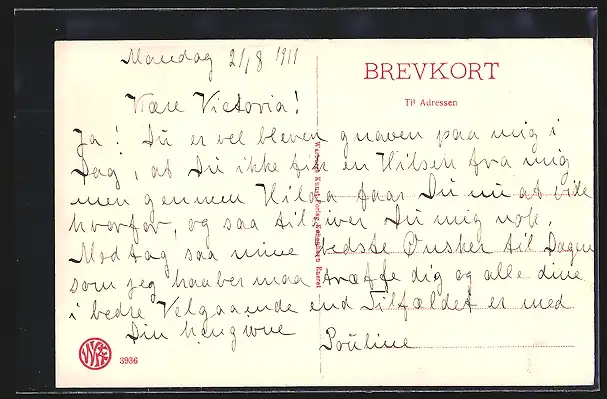 Mandag 21/8 1911
BREVKORT
Til Adressen
Kære Victoria!
Ja! Du er vel bleven gnaven paa mig i
Dag, at Du ikke fik en Hilsen fra mig
men gennem Hilda faar Du nu at vide
hvorfor, og saa tilgiver Du mig nok.
Modtag saa mine bedste Ønsker til Dagen
som jeg haaber maa træffe dig og alle dine
i bedre Velgaaende end Tilfældet er med
Din hengivne
Pouline
3936